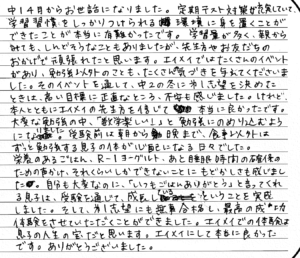 中1 4月からお世話になりました。定期テスト対策が充実していて
学習習慣をしっかりつけられる環境に身を置くことが
できたことが本当に有難かったです。学習量が多く、親から
みても、しんどそうなこともありましたが、先生方やお友だちの
おかげで頑張れたと思います。エイメイではたくさんのイベント
があり、勉強以外のことも、たくさん気づきを与えてくださいま
した。そのイベントを通して、中2の冬に 志望を決めた
ときは、高い目標に正直なところ、不安も感じました。けれど、
本人とともにエイメイの先生方を信じて本当に良かったです。
大変な勉強の中、「数学楽しい」と勉強にのめり込むよう
になりました。受験前は朝から晩まで、食事以外は
ずっと勉強する息子の体が心配になる日々でした。
栄養のあるごはん、R-1ヨーグルト、あと睡眠時間の確保の
ための声かけ、それくらいしかできないことにもどかしさも感じまし
た。自分も大変なのに、「いつもごはんありがとう」と言ってくれ
る息子は、受験を通じて、成長したということを実感
しました。そして、 志望にも無事合格し、最高の成功
体験をさせていただくことができました。エイメイでの体験は
息子の人生の宝だと思います。エイメイにして本当に良かった
です。ありがとうございました。